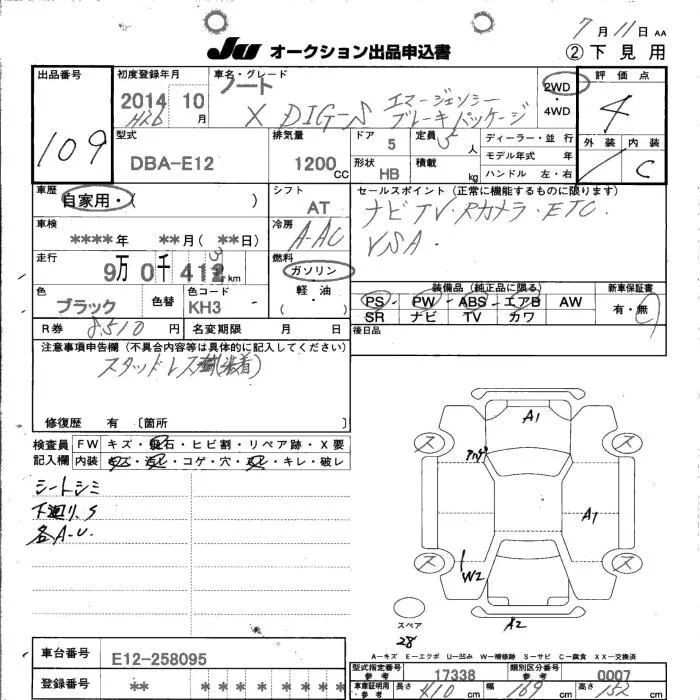 7月11日 AA
JU オークション出品申込書
② 下見用
出品番号
109
初度登録年月
2014年10月
H26
車名・グレード
ノート
X DIG-S エマージェンシー
ブレーキパッケージ
2WD・4WD
評価点
4
型式
DBA-E12
排気量
1200 CC
ドア
5
定員
5人
形状
HB
積載
kg
ディーラー・並行
モデル年式 年
ハンドル 左・右
外装
内装
C
車歴
自家用・( )
シフト
AT
セールスポイント (正常に機能するものに限ります)
ナビTV・Rカメラ・ETC・
VSA・
車検
****年 **月 ( **日)
冷房
A-AC
走行
9万0千412km
3
燃料
ガソリン
軽・油
( )
色
ブラック
色替
色コード
KH3
装備品 (純正品に限る)
PS PW ABS エアB AW
SR ナビ TV カワ
新車保証書
有・無
R券 8510円
名変期限 月 日
後日品
注意事項申告欄 (不具合内容等は具体的に記入してください)
スタッドレス(装着)
修復歴 有 〔箇所 〕
検査員
記入欄
FW キズ・飛石・ヒビ割・リペア跡・X要
内装 キズ・汚レ・コゲ・穴・スレ・キレ・破レ
シートシミ
下廻りS
各A.U.
A1
ス
ス
A1
W2
ス
ス
A2
スペア
28
A－キズ E－エクボ U－凹み W－補修跡 S－サビ C－腐食 XX－交換済
車台番号
E12-258095
登録番号
** * * * * * * *
型式指定番号
参考
17338
類別区分番号
参考
0007
車庫証明用
参考
長さ 410cm 幅 169cm 高さ 152cm